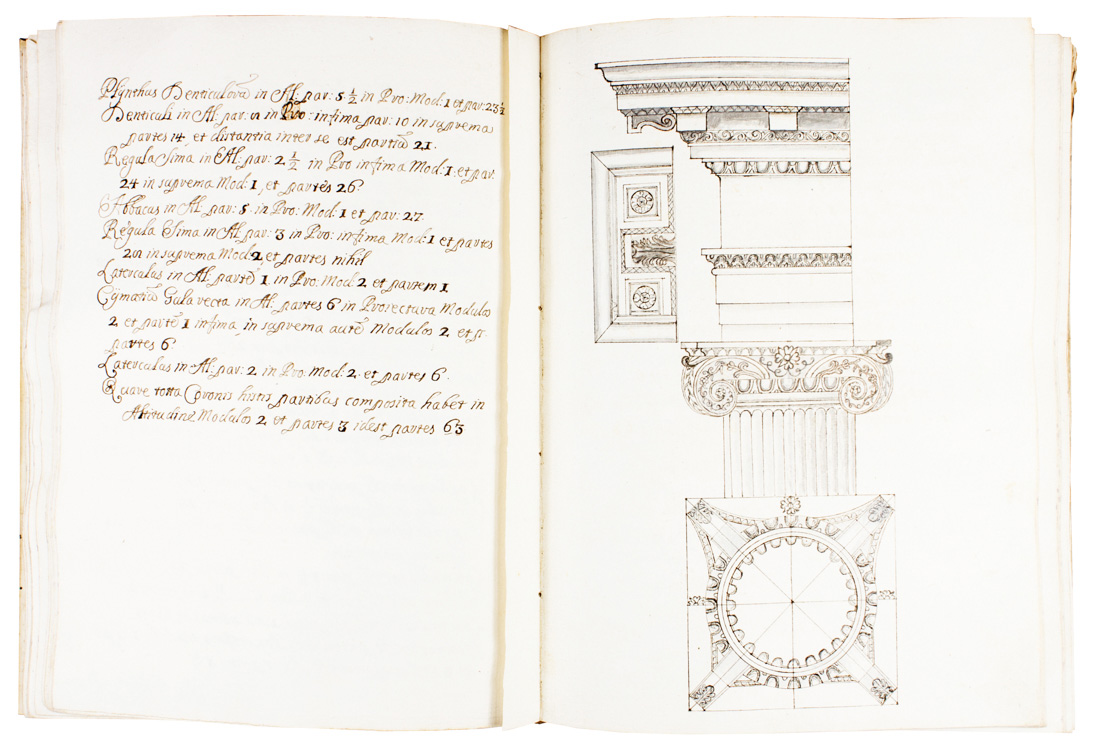 Plynthus Denticulorũ in Al: par: 5 ½ in Pro: Mod: 1 et par: 23 ½
Denticuli in Al: par: in Pro: infima par: 10 in suprema
partes 14, et distantia inter se est partiũ 21.
Regula Sima in Al: par: 2 ½ in Pro infima Mod: 1: et par:
24 in suprema Mod: 1, et partes 26
Abbacus in Al: par: 5. in Pro: Mod: 1 et par: 27.
Regula Sima in Al par: 3 in Pro: infima Mod: 1 et partes
in suprema Mod: 2, et partes nihil
Laterculus in Al: partẽ 1. in Pro: Mod: 2 et partem 1
Cÿmatiũ Gula recta in Al: partes 6 in Proiectura Modulos
2 et partẽ 1 infima, in suprema autẽ Modulos 2 et
partes 6
Laterculus in Al: par: 2 in Pro: Mod: 2. et partes 6.
Quare totta Coronis histis partibus composita habet in
Altitudine Modulos 2 et partes 3 idest partes 63